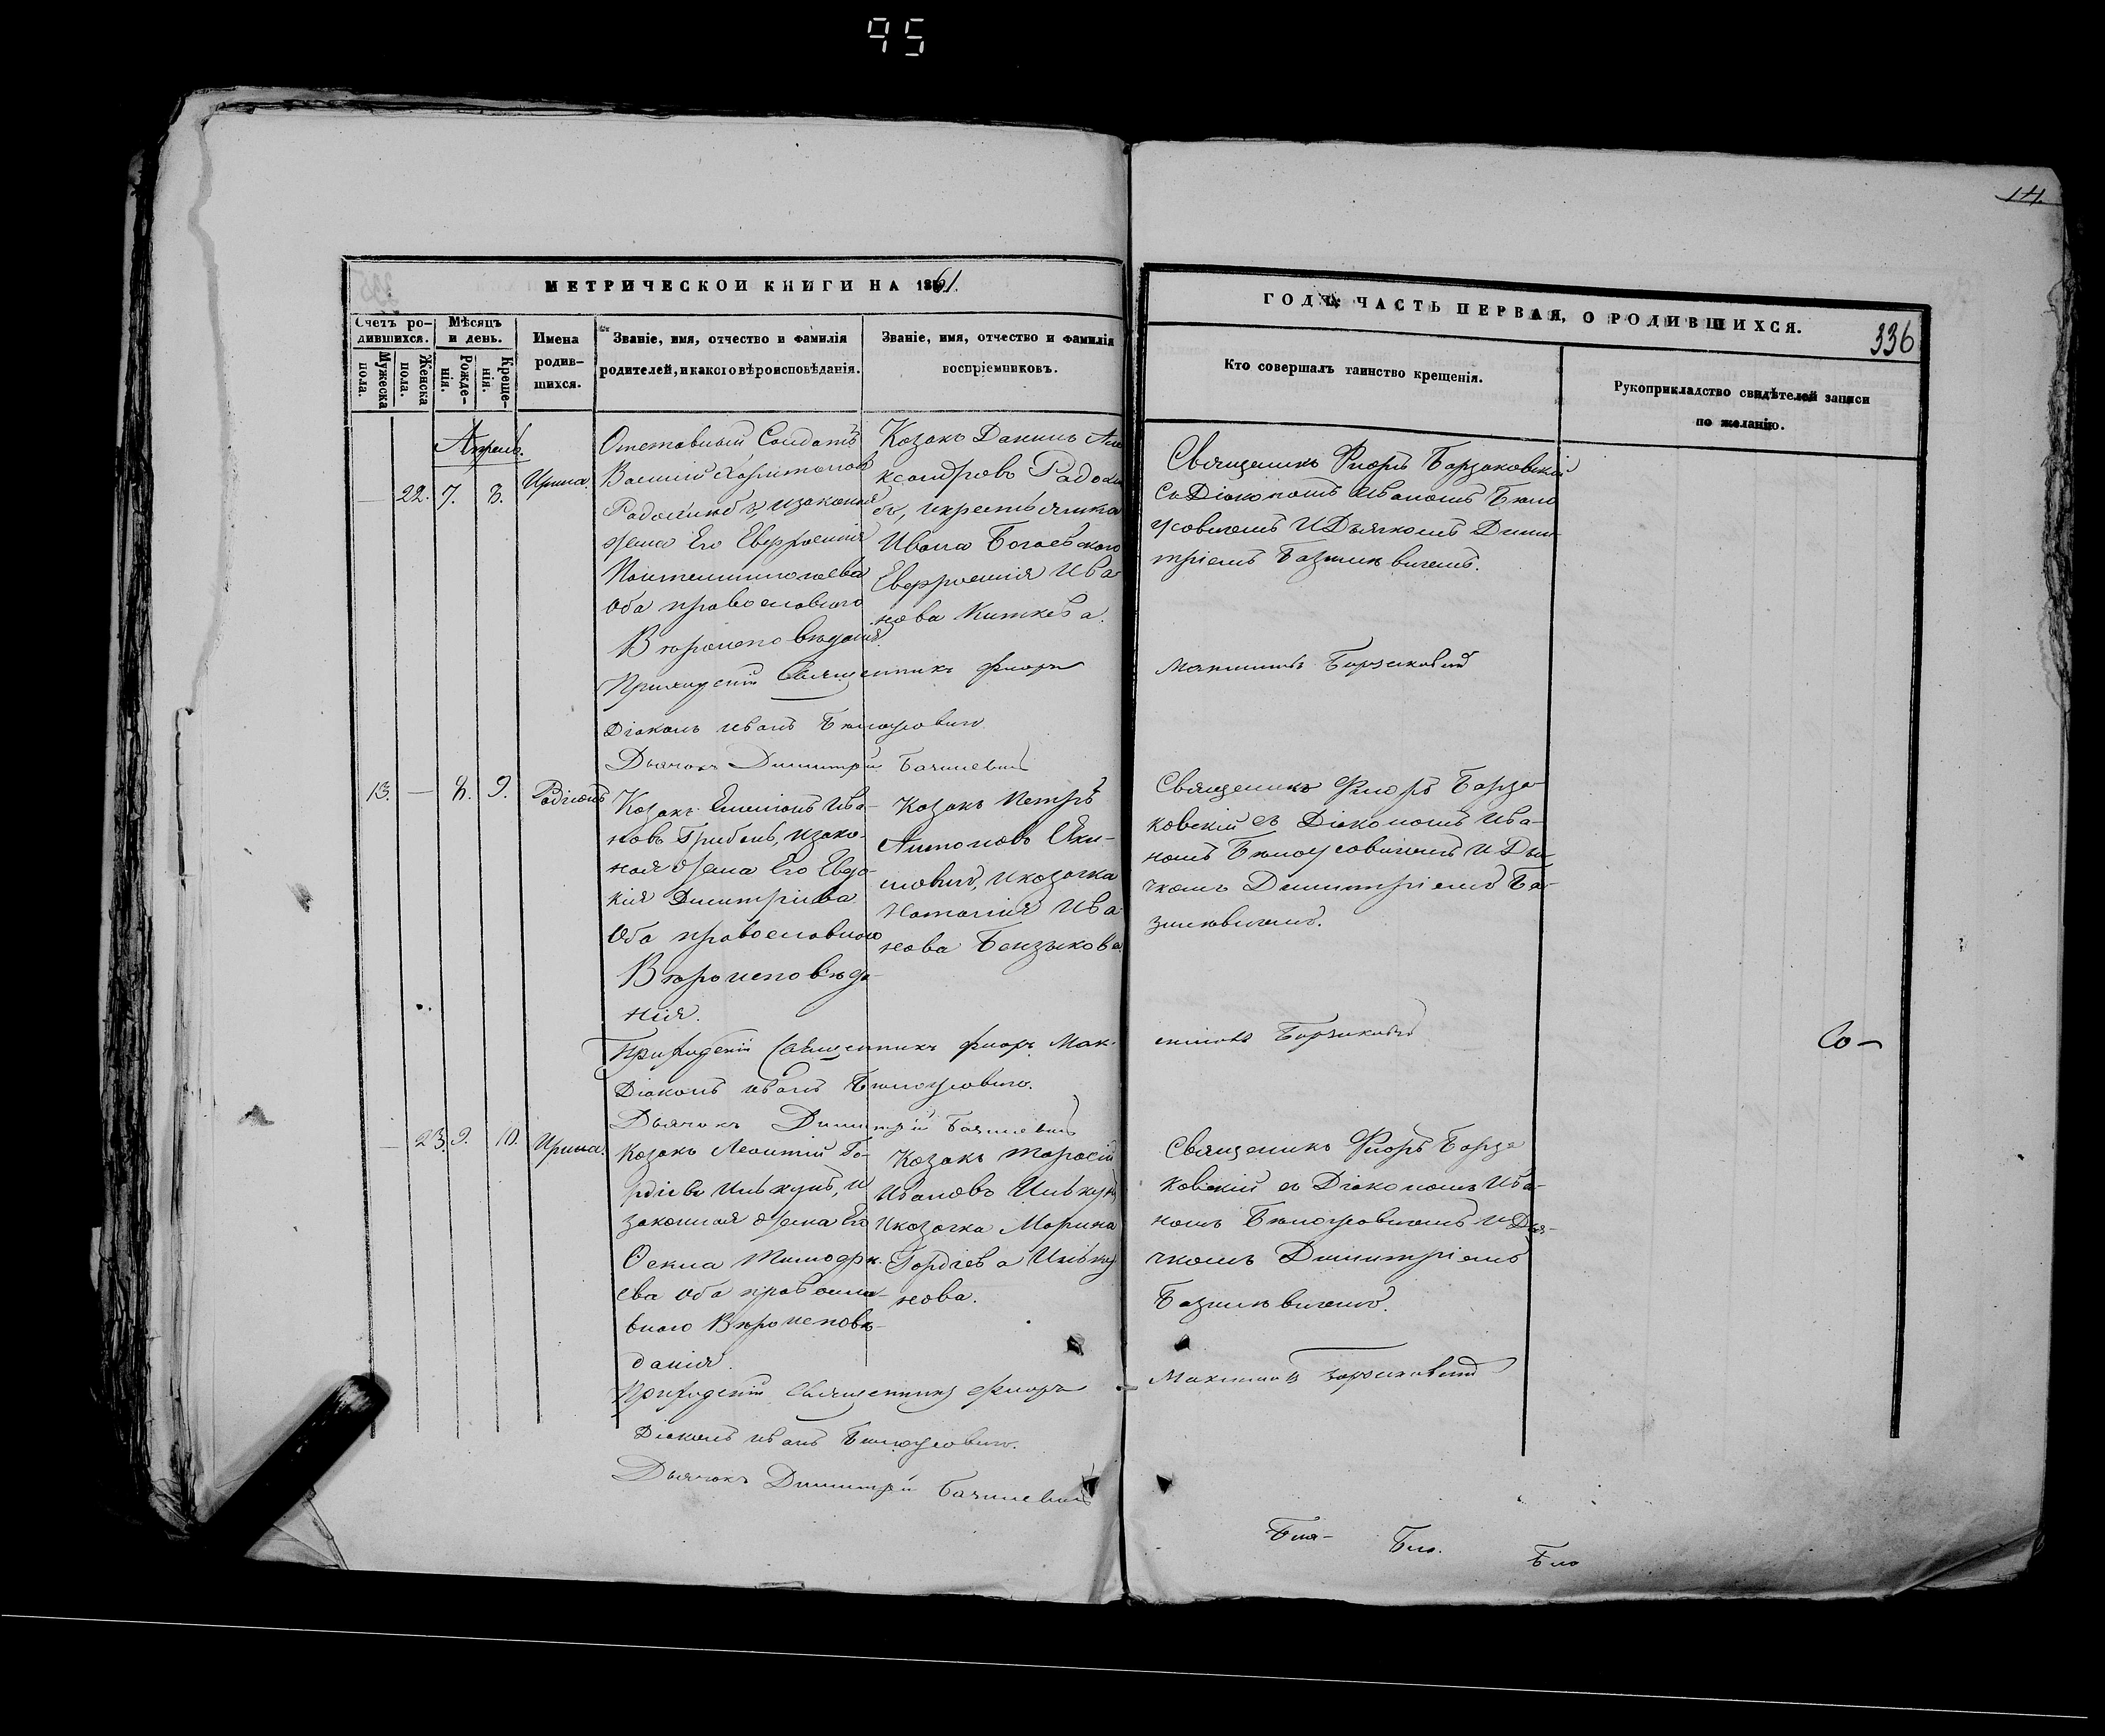 95
14.
МЕТРИЧЕСКОЙ КНИГИ НА 1861.
Счетъ ро-
дившихся.
Мужеска
пола.
Женска
пола.
Мѣсяцъ
и день.
Рожде-
нія.
Креще-
нія.
Имена
родив-
шихся.
Званіе, имя, отчество и фамилія
родителей, и какого вѣроисповѣданія.
Званіе, имя, отчество и фамилія
воспріемниковъ.
ГОДЪ: ЧАСТЬ ПЕРВАЯ, О РОДИВШИХСЯ.
336
Кто совершалъ таинство крещенія.
Рукоприкладство свидѣтелей записи
по желанію.
Апрель.
— 22. 7. 8.
Ирина.
Отставный Солдатъ
Василій Харитоновъ
жена Его Евфросинія
Оба православного
Вѣроисповѣданія
Козакъ Данилъ Але
ксандровъ
Ивана Богаевского
Евфросинія Ива
нова
Священикъ Флоръ Барзаковскій
съ Діакономъ Иваномъ Бѣло
усовичемъ и Дьячкомъ Дими
тріемъ
Приходскій Священникъ Флоръ
Максимовъ Борзаковскій
Діаконъ Иванъ Бѣлоусовичъ
Дьячокъ Димитрій
13. — 8. 9.
Родіонъ
Козакъ Емеліанъ Ива-
новъ Грибенъ, и зако-
ная жена Его Евдо-
кія Димитріева
Оба православного
Вѣроисповѣда-
нія.
Козакъ Петръ
Антоновъ Яки-
мовичъ, и козачка
Наталія Ива
нова
Священикъ Флоръ Барза-
ковскій съ Діакономъ Ива-
номъ Бѣлоусовичемъ и Дья
чкомъ Димитріемъ Ба-
Приходскій Священникъ Флоръ Мак-
симовъ Борзаковскій
Со-
Діаконъ Иванъ Бѣлоусовичъ.
Дьячокъ Димитрій
— 23. 9. 10.
Ирина.
Козакъ Леонтій Го-
рдіевъ Цѣвкунъ, и
законная жена Его
Оекла Тимофѣ-
ева Оба правосла-
вного Вѣроисповѣ-
данія.
Козакъ Тарасій
Ивановъ Цѣвкунъ
и козачка Марина
Гордіева Цѣвку
нова.
Священикъ Флоръ Барза
ковскій съ Діакономъ Ива-
номъ Бѣлоусовичемъ и Дья-
чкомъ Димитріемъ
Приходскій Священникъ Флоръ
Максимовъ Борзаковскій
Діаконъ Иванъ Бѣлоусовичъ.
Дьячокъ Димитрій